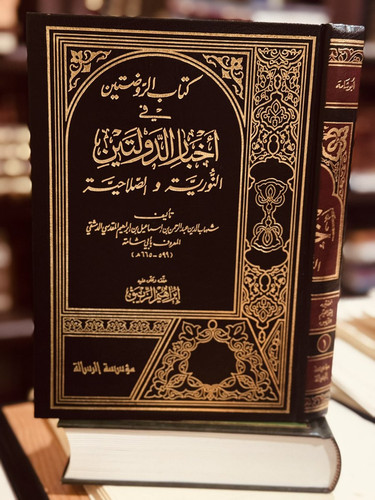 كتاب الروضتين
في
أخبار الدولتين
النورية و الصلاحية
تأليف
شهاب الدين عبد الرحمن بن إسماعيل بن إبراهيم المقدسي الدمشقي
المعروف بأبي شامة
(٥٩٩-٦٦٥هـ)
حققه وعلق عليه
إبراهيم الزيبق
مؤسسة الرسالة
أبو شامة
١